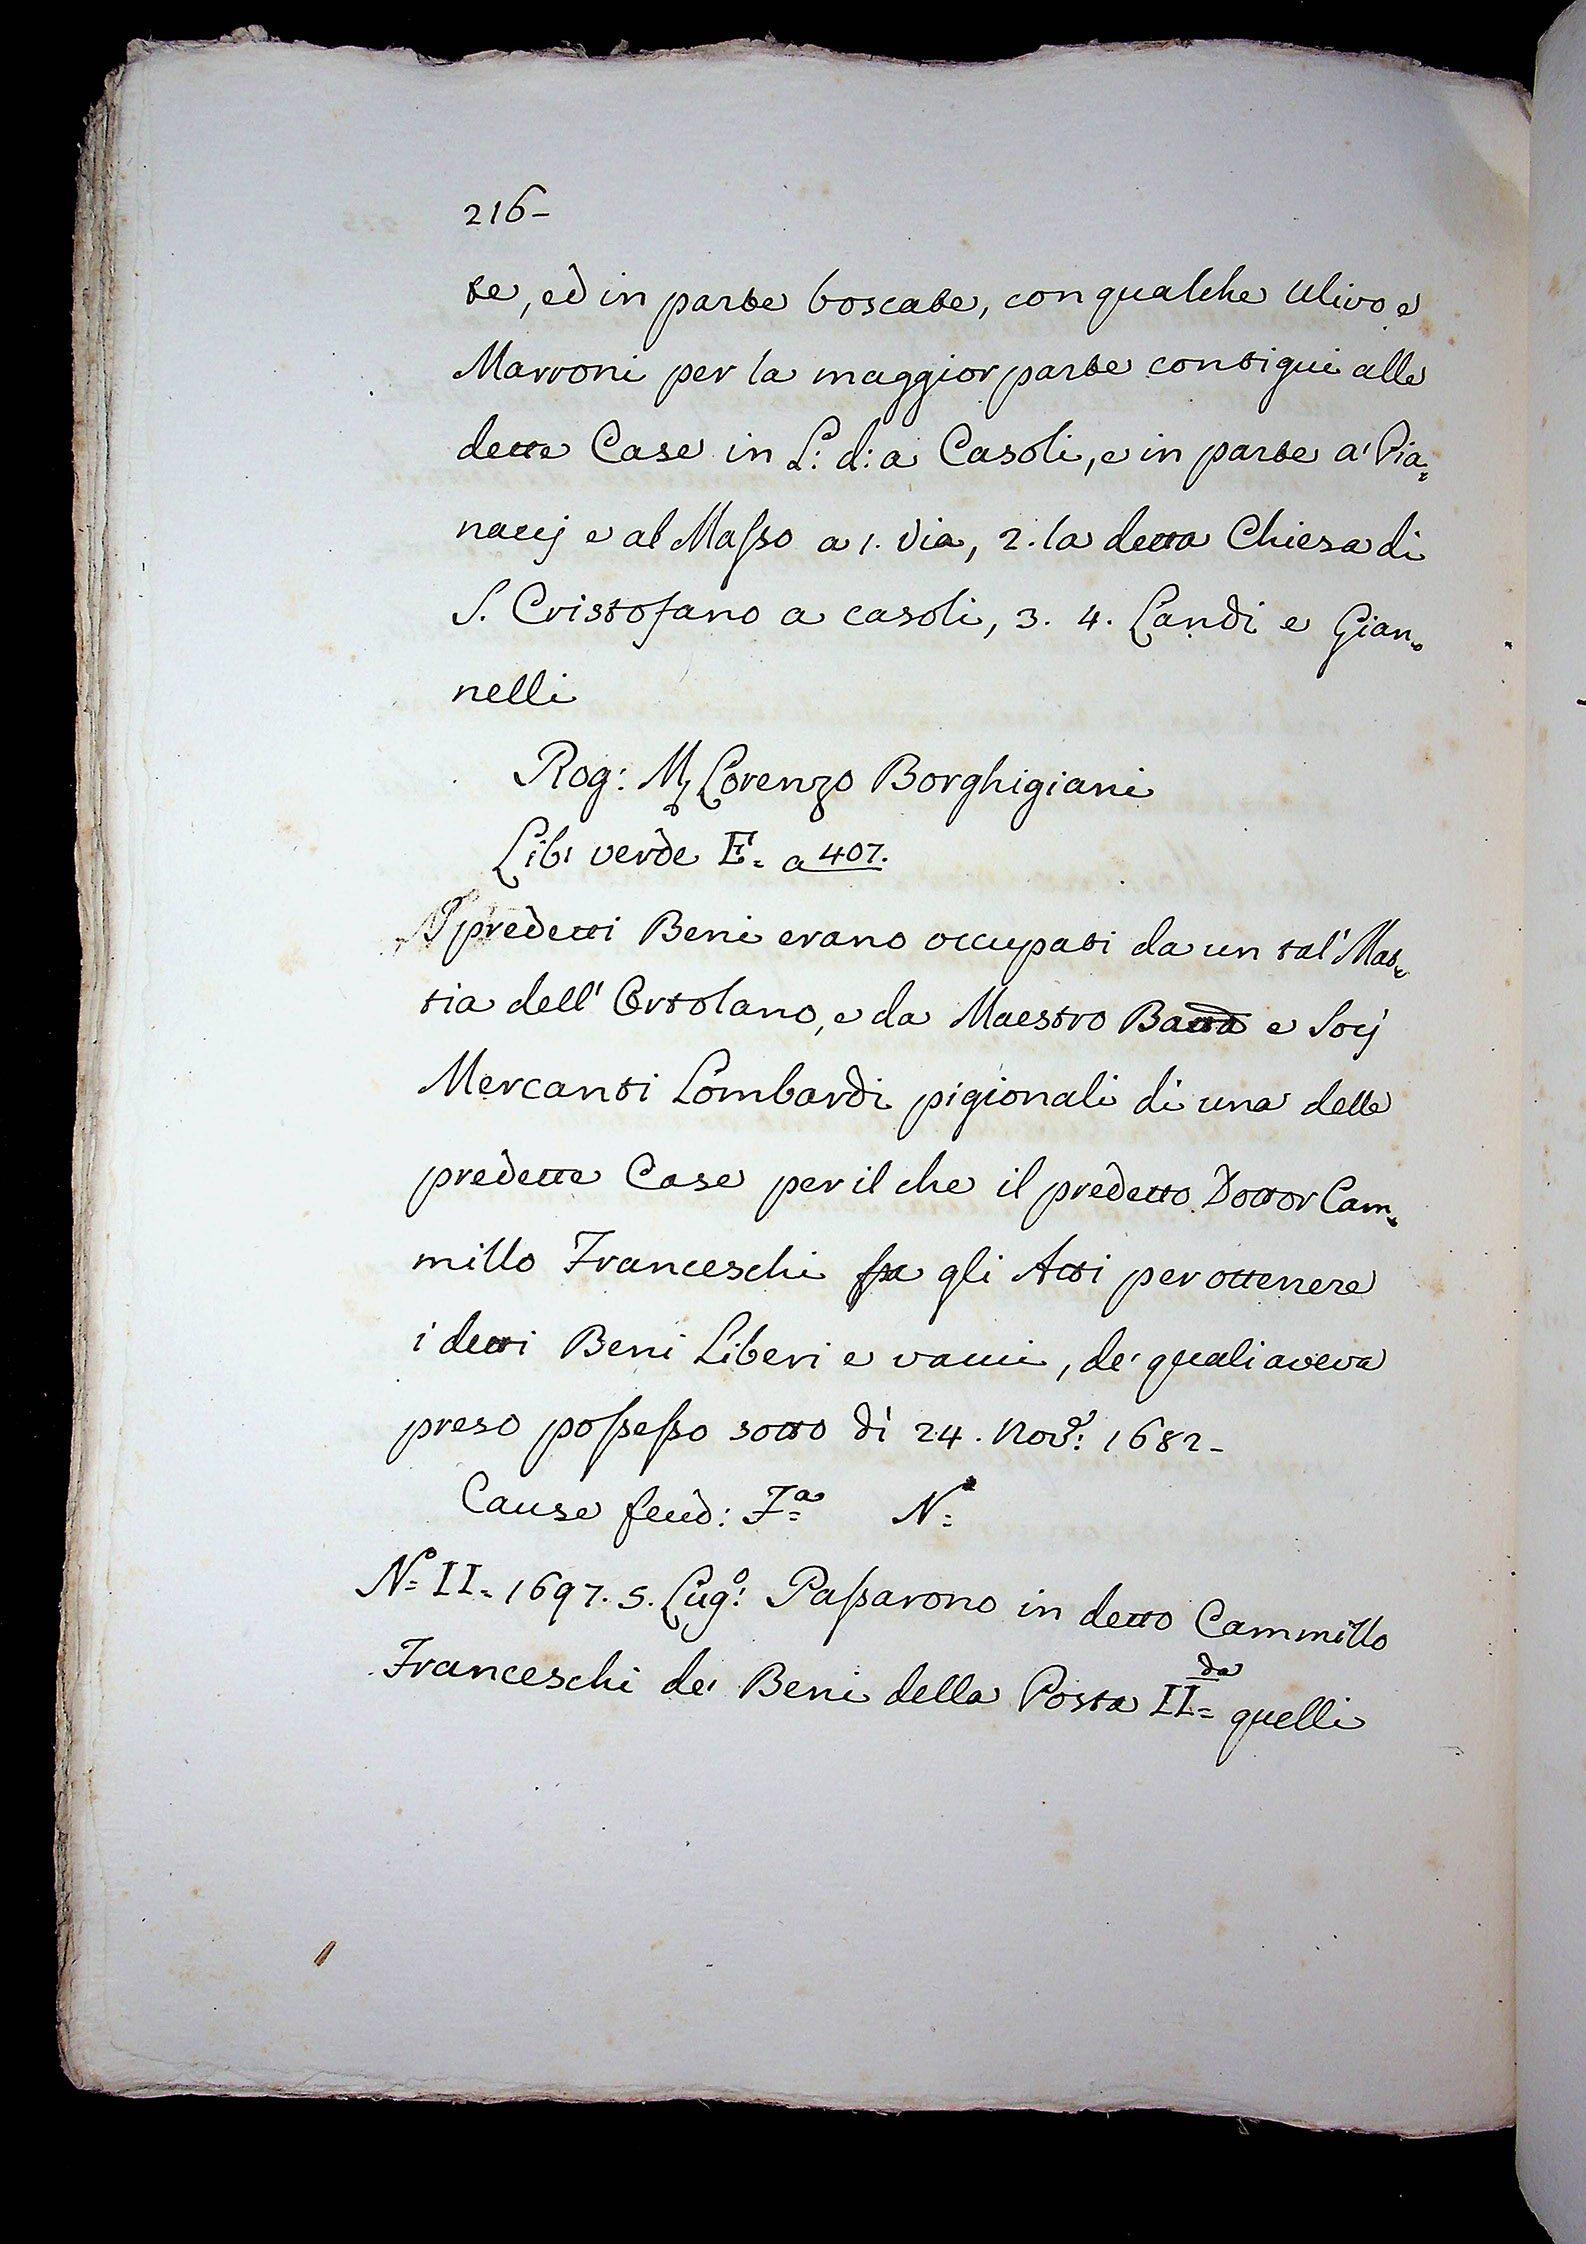 216-
te, ed in parte boscate, con qualche Ulivo e
Marroni per la maggior parte contigui alle
dette Case in L: d: a Casoli, e in parte a' Pia=
nacij e al Masso a 1. Via, 2. la detta Chiesa di
S. Cristofano a casoli, 3. 4. Landi e Gian=
nelli
Rog: M Lorenzo Borghigiani
Lib: verde E. a 407.
I predetti Beni erano occupati da un tal' Mat=
tia dell' Ortolano, e da Maestro Batta e Socij
Mercanti Lombardi pigionali di una delle
predette Case per il che il predetto Dottor Cam=
millo Franceschi fa gli Atti per ottenere
i detti Beni Liberi e vacui, de' quali aveva
preso possesso sotto dì 24. Nov.e: 1682-
Cause feud: Fa= N=
No= II= 1697. 5. Lugo: Passarono in detto Cammillo
Franceschi de' Beni della Posta IIda= quelli